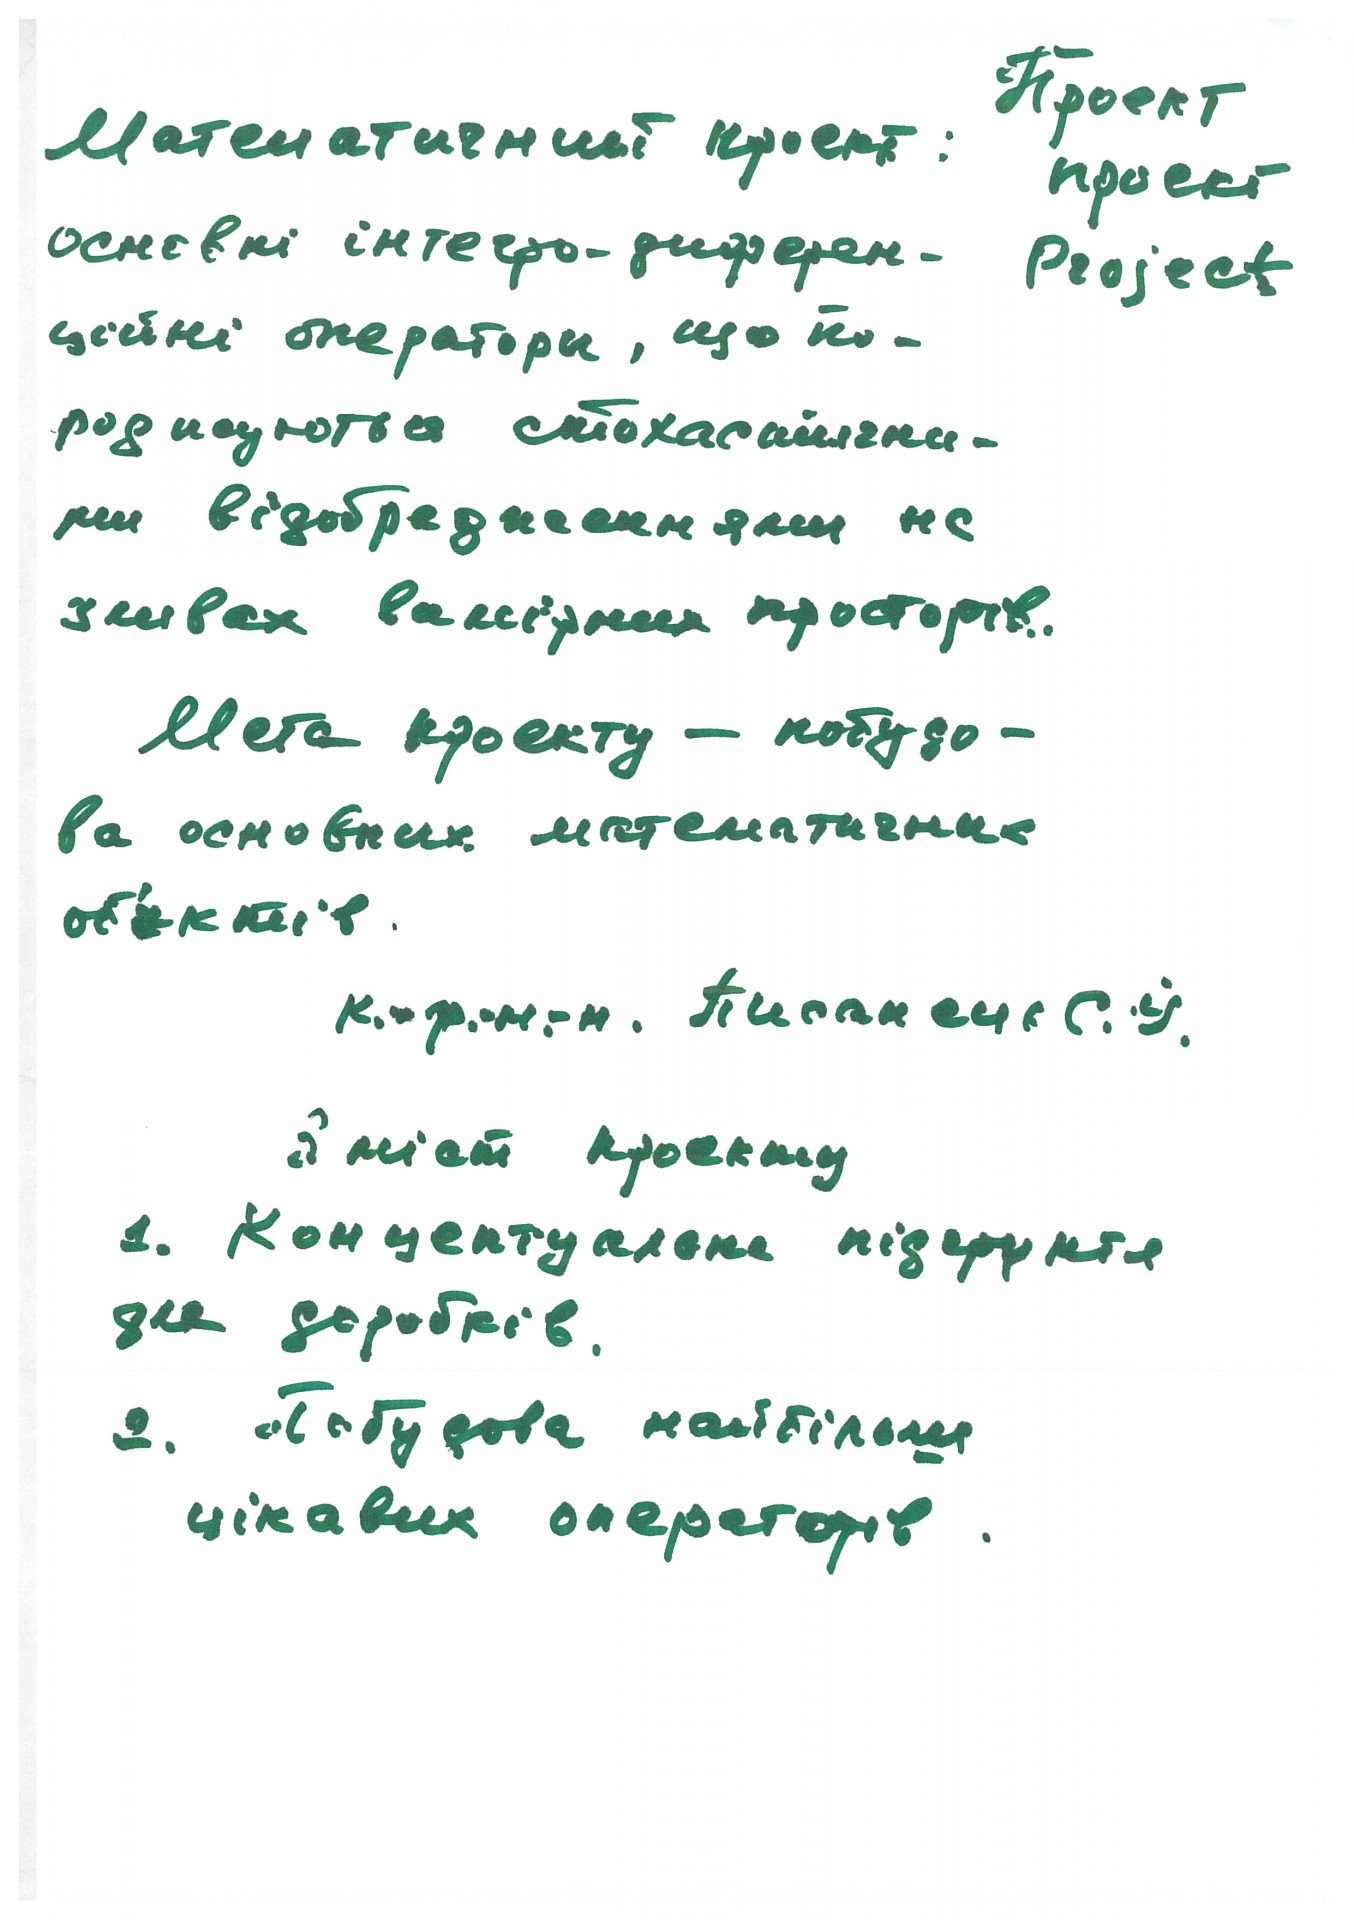 Математичний проект:
основні інтегро-диферен-
ційні оператори, що по-
роджуються стохастични-
ми відображеннями на
зливах вимірних просторів.
Проект
проект
Project
Мета проекту — побудо-
ва основних математичних
об'єктів.
к.-ф.-м.-н. Писанець С.Й.
Зміст проекту
1. Концептуальне підґрунтя
для доробків.
2. Побудова найбільш
цікавих операторів.